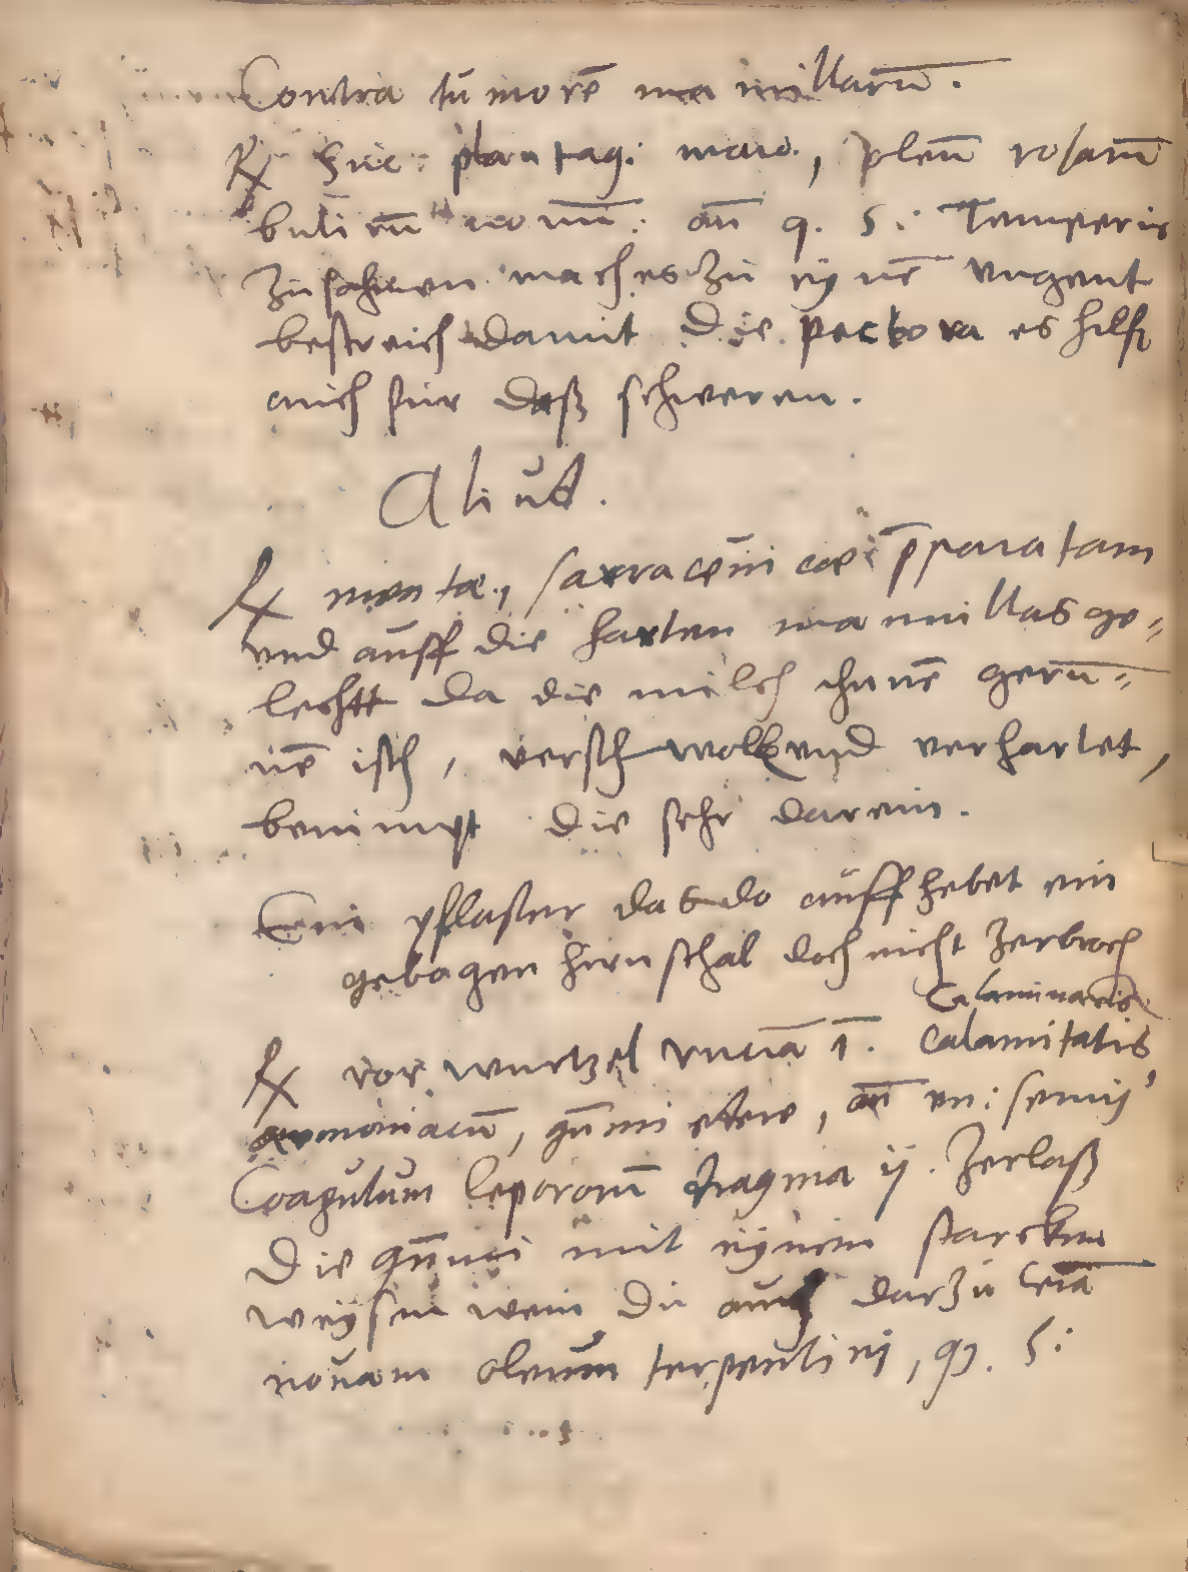 Contra tumorē mamillarū.
℞ Suc: plantag: maio., oleū rosarū
butirū nouū: an̄ q. s: Temperir
zusahmen mach es zu eynē vngent
bestreich damit die pectora es hilft
auch für daß schweren.
Aliud.
℞ menta, sarraceni p̄paratam
vnd auff die harten mamillas ge=
lechtt da die milch ihnnē gerū=
nē isch, verschwolln vnd verhartet,
benimpt die sehr darein.
Ein pflaster das do auffhebet ein
gebogen hirnschal doch nicht zerbroch
Calaminaris
℞ ror wurtzel vncia 1. Calamitatis
armoniacū, gūmi, an̄ vn: semij
Coagulum leporum dragma ij. Zerlaß
die gūmi mit eynem starcken
weysen wein du auch darzu cerā
nouam oleum terpentini, q. s: